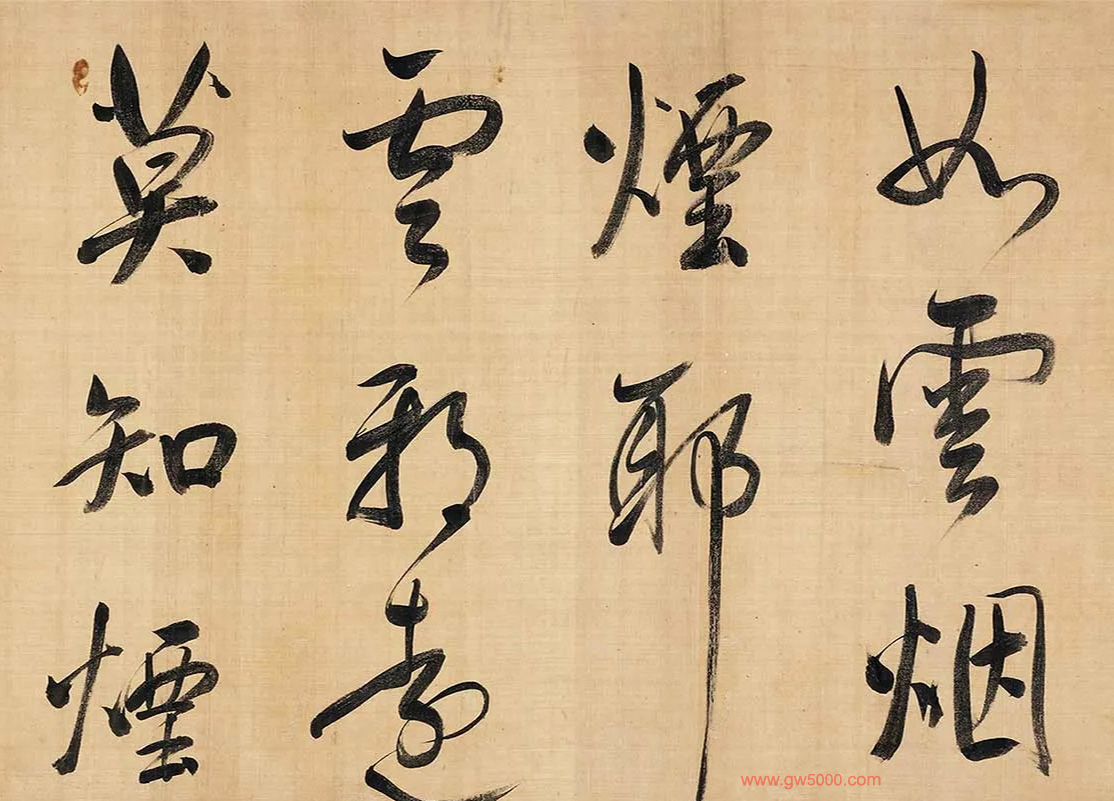 如雲烟
煙耶
雲邪遠
莫知煙
www.gw5000.com